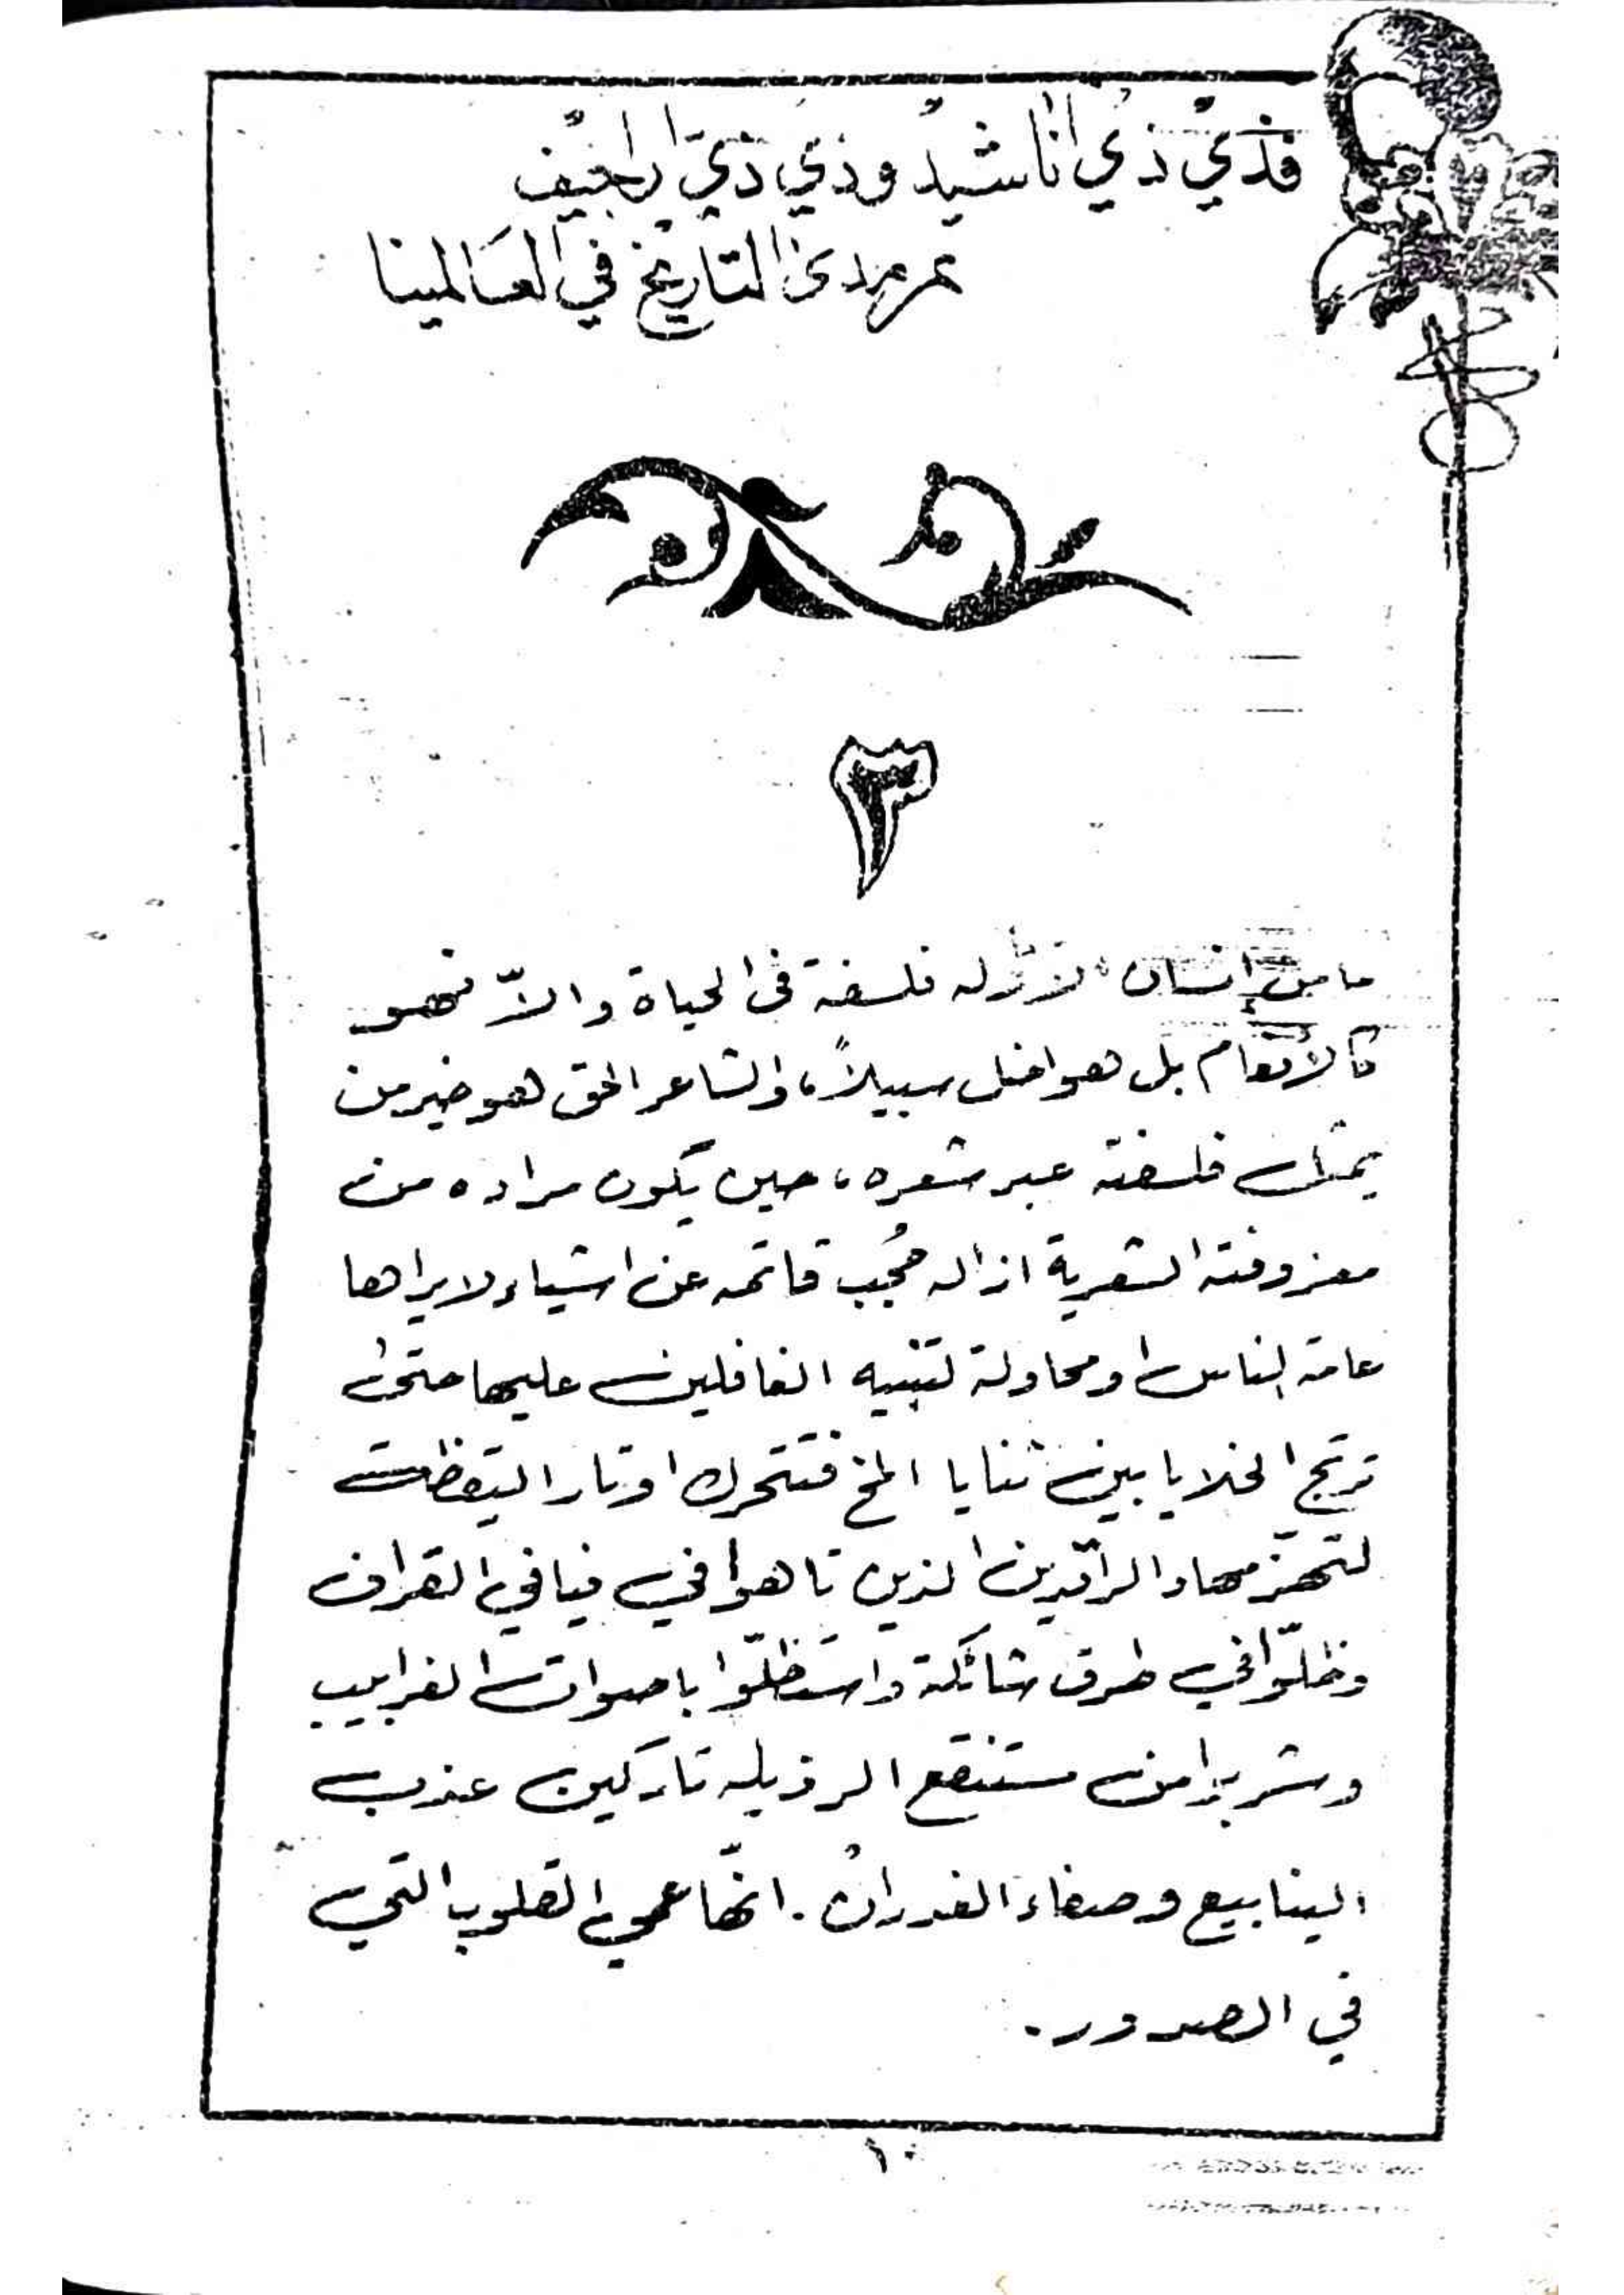 فذي ذي أناشيد وذي ذي اراجيف
تمر مدى التاريخ في العالمينا
٣
ما من إنسان إلا وله فلسفة في الحياة والاّ فهو
كالأنعام بل هو اضل سبيلاً، والشاعر الحق هو خير من
يمثل فلسفته عبر شعره، حين يكون مراده من
معزوفته الشعرية ازاله حُجب قاتمه عن اشياء لا يراها
عامة الناس او محاولة لتنبيه الغافلين عليها حتى
ترتج الخلايا بين ثنايا المخ فتتحرك اوتار اليقظة
لتهتز مهاد الراقدين الذين تاهوا في فيافي القرا
وضلّوا في طرق شائكة واستظلّوا باصوات الغرابيب
وشربوا من مستنقع الرذيله تاركين عذب
الينابيع وصفاء الغدران. انها عمى القلوب التي
في الصدور.
١٠